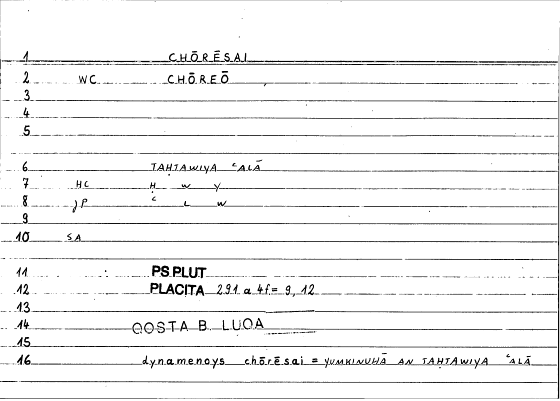 1 CHŌRĒSAI
2 WC CHŌREŌ
3
4
5
6 TAḤTAWIYA ʿALĀ
7 HC Ḥ W Y
8 JP ʿ L W
9
10 SA
11 PS PLUT
12 PLACITA 291 a 4f = 9, 12
13
14 QOSTA B. LUQA
15
16 dynamenoys chōrēsai = YUMKINUHĀ AN TAḤTAWIYA ʿALĀ